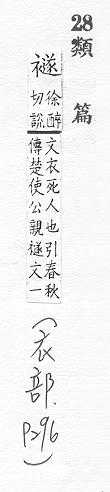 28
類篇
襚 徐醉切說文衣死人也引春秋傳楚使公親襚文一
(衣部 P296)